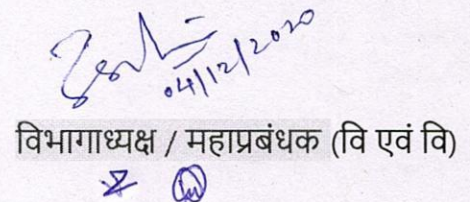 04/12/2020
विभागाध्यक्ष / महाप्रबंधक (वि एवं वि)